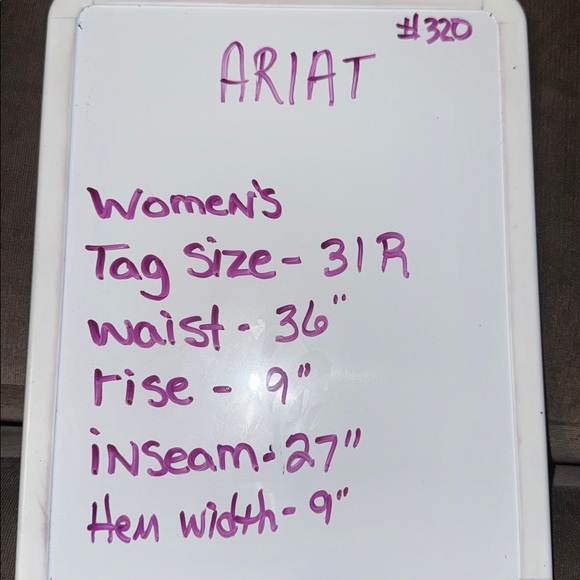 #320
ARIAT
Women's
Tag Size - 31R
waist - 36"
rise - 9"
inseam - 27"
Hem width - 9"